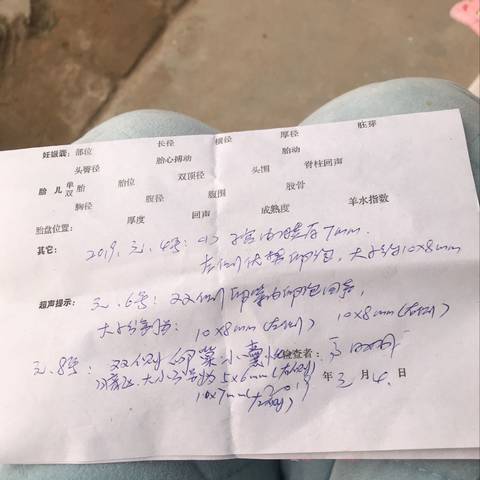 妊娠囊：部位 长径 横径 厚径 胚芽
头臀径 胎心搏动 胎动
胎 儿 单双 胎 胎位 双顶径 头围 脊柱回声
胸径 腹径 腹围 股骨
胎盘位置： 厚度 回声 成熟度 羊水指数
其它： 2019. 元. 4号： 子宫内膜厚7mm.
左侧优势卵泡, 大小约10×8mm
超声提示： 元. 6号： 双侧卵巢内卵泡回声,
大小分别为： 10×8mm(左侧) 10×8mm(右侧)
元. 8号： 双侧卵巢小囊 检查者：
大小分别为5×6mm(右侧) 年 三 月 4. 日
10×7mm(左侧)